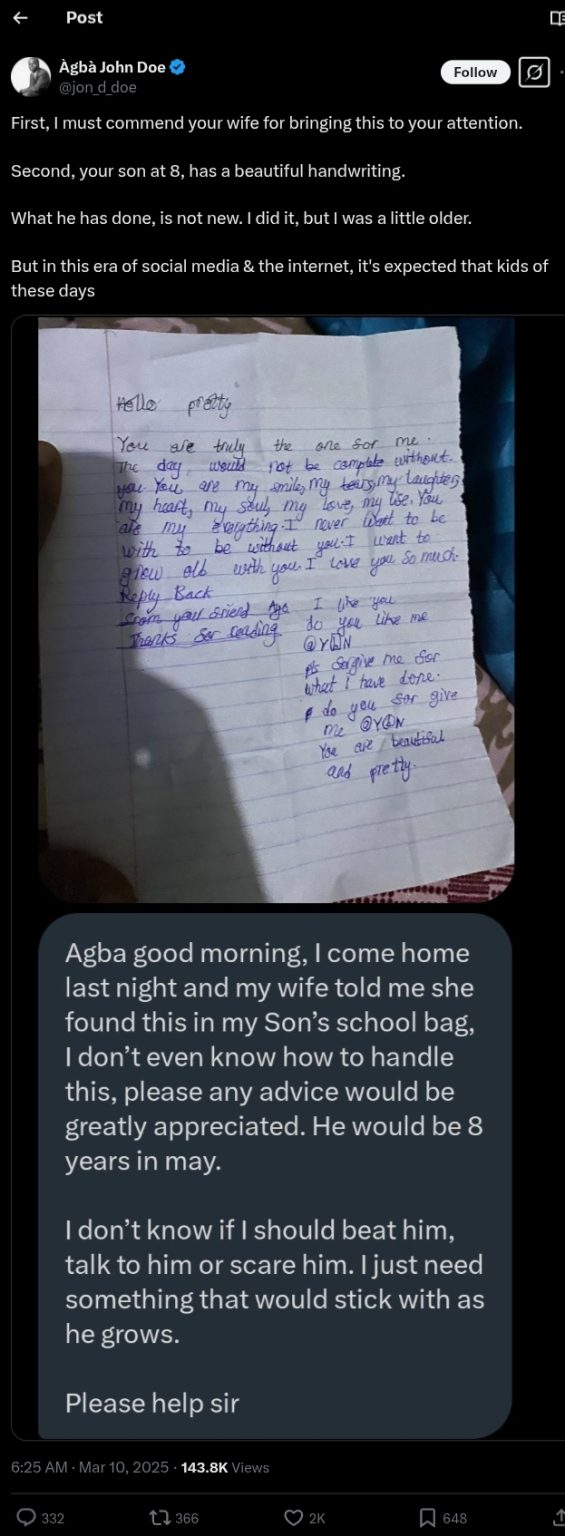 Post
Àgbà John Doe
@jon_d_doe
Follow
First, I must commend your wife for bringing this to your attention.
Second, your son at 8, has a beautiful handwriting.
What he has done, is not new. I did it, but I was a little older.
But in this era of social media & the internet, it's expected that kids of
these days
Hello pretty
You are truly the one for me.
The day would not be complete without
you You are my smile, my tears, my laughter,
my heart, my soul, my love, my life. You
are my everything. I never want to be
with to be without you. I want to
grow old with you. I love you so much.
Reply Back
from your friend
Thanks for reading
I like you
do you like me
@Y N
pls forgive me for
what I have done.
do you for give
me @Y N
You are beautiful
and pretty.
Agba good morning, I come home
last night and my wife told me she
found this in my Son’s school bag,
I don’t even know how to handle
this, please any advice would be
greatly appreciated. He would be 8
years in may.
I don’t know if I should beat him,
talk to him or scare him. I just need
something that would stick with as
he grows.
Please help sir
6:25 AM · Mar 10, 2025 · 143.8K Views
332 366 2K 648